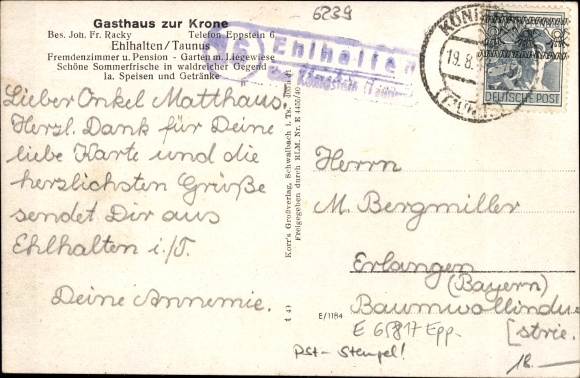 6239
Gasthaus zur Krone
Bes. Joh. Fr. Racky Telefon Eppstein 6
Ehlhalten/Taunus
Fremdenzimmer u. Pension - Garten m. Liegewiese
Schöne Sommerfrische in waldreicher Gegend
Ia. Speisen und Getränke
16 Ehlhalten
Königstein (Taunus)
KÖNIG
19.8.
DEUTSCHE POST
Lieber Onkel Matthäus.
Herzl. Dank für Deine
liebe Karte und die
herzlichsten Grüße
sendet Dir aus
Ehlhalten i./T.
Deine Annemie.
Korr's Großverlag, Schwalbach i. Ts.
Freigegeben durch RLM. Nr. E 4455/40
Herrn
M. Bergmiller
Erlangen
(Bayern)
Baumwollindu
[strie.
E/1184
E 65817 Epp.
Pst-Stempel!
18.-